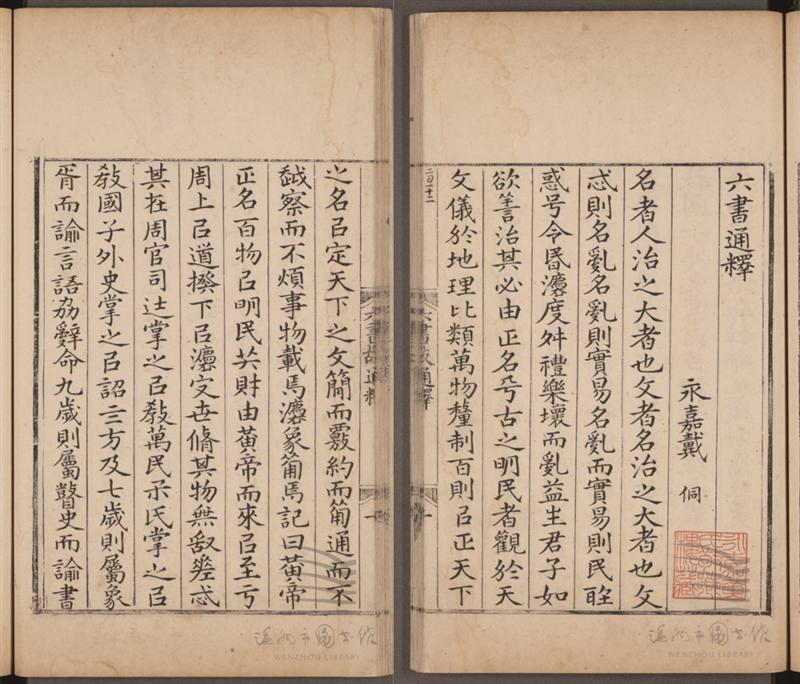 六書通釋
永嘉戴 侗
名者人治之大者也文者名治之大者也文
忒則名亂名亂則實易名亂而實易則民
惑号令昬灋度舛禮樂壞而亂益生君子如
欲善治其必由正名乎古之明民者觀於天
文儀於地理比類萬物釐制百則㠯正天下
六書故通釋
一
之名㠯定天下之文簡而覈約而𤰈通而不
察而不煩事物載焉灋象𤰈焉記曰黃帝
正名百物㠯明民共財由黃帝而來㠯至亏
周上㠯道揆下㠯灋守世脩其物無敢差忒
其在周官司徒掌之㠯敎萬民氏掌之㠯
敎國子外史掌之㠯詔亖方及七歲則屬象
胥而諭言語劦辭命九歲則屬瞽史而諭書
六書故通釋
一
温州市图书馆
WENZHOU LIBRARY
温州市图书馆
WENZHOU LIBRARY